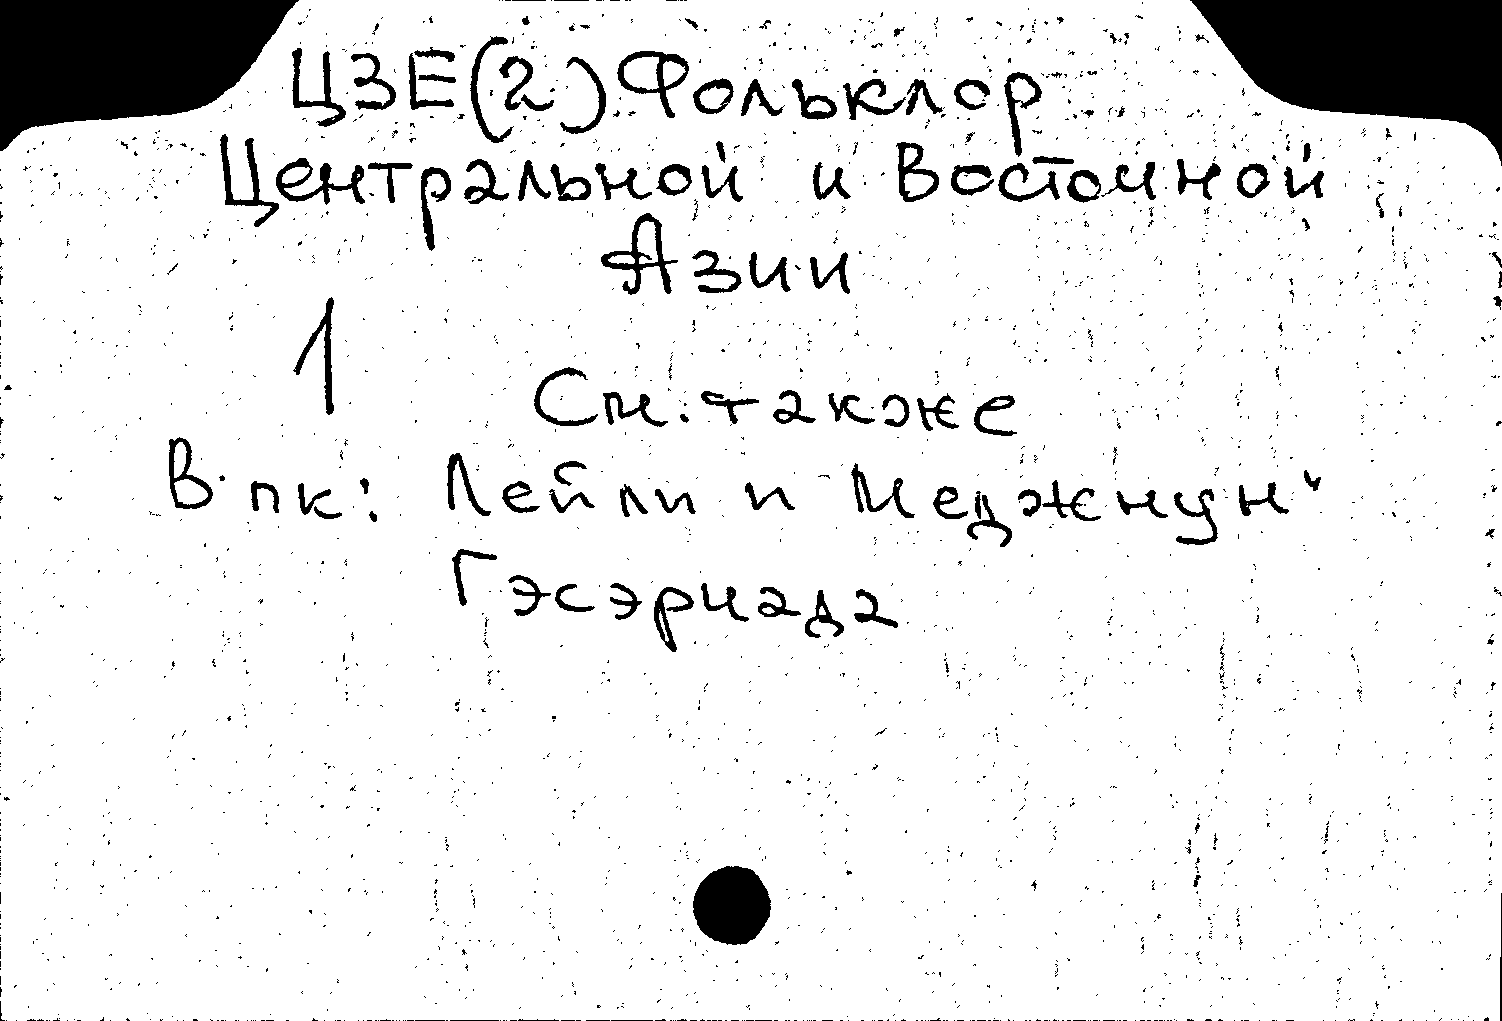 ЦЗЕ(2) Фольклор
Центральной и Восточной
Азии
1
См. также
В пк: Лейли и Меджнун"
Гэсэриада